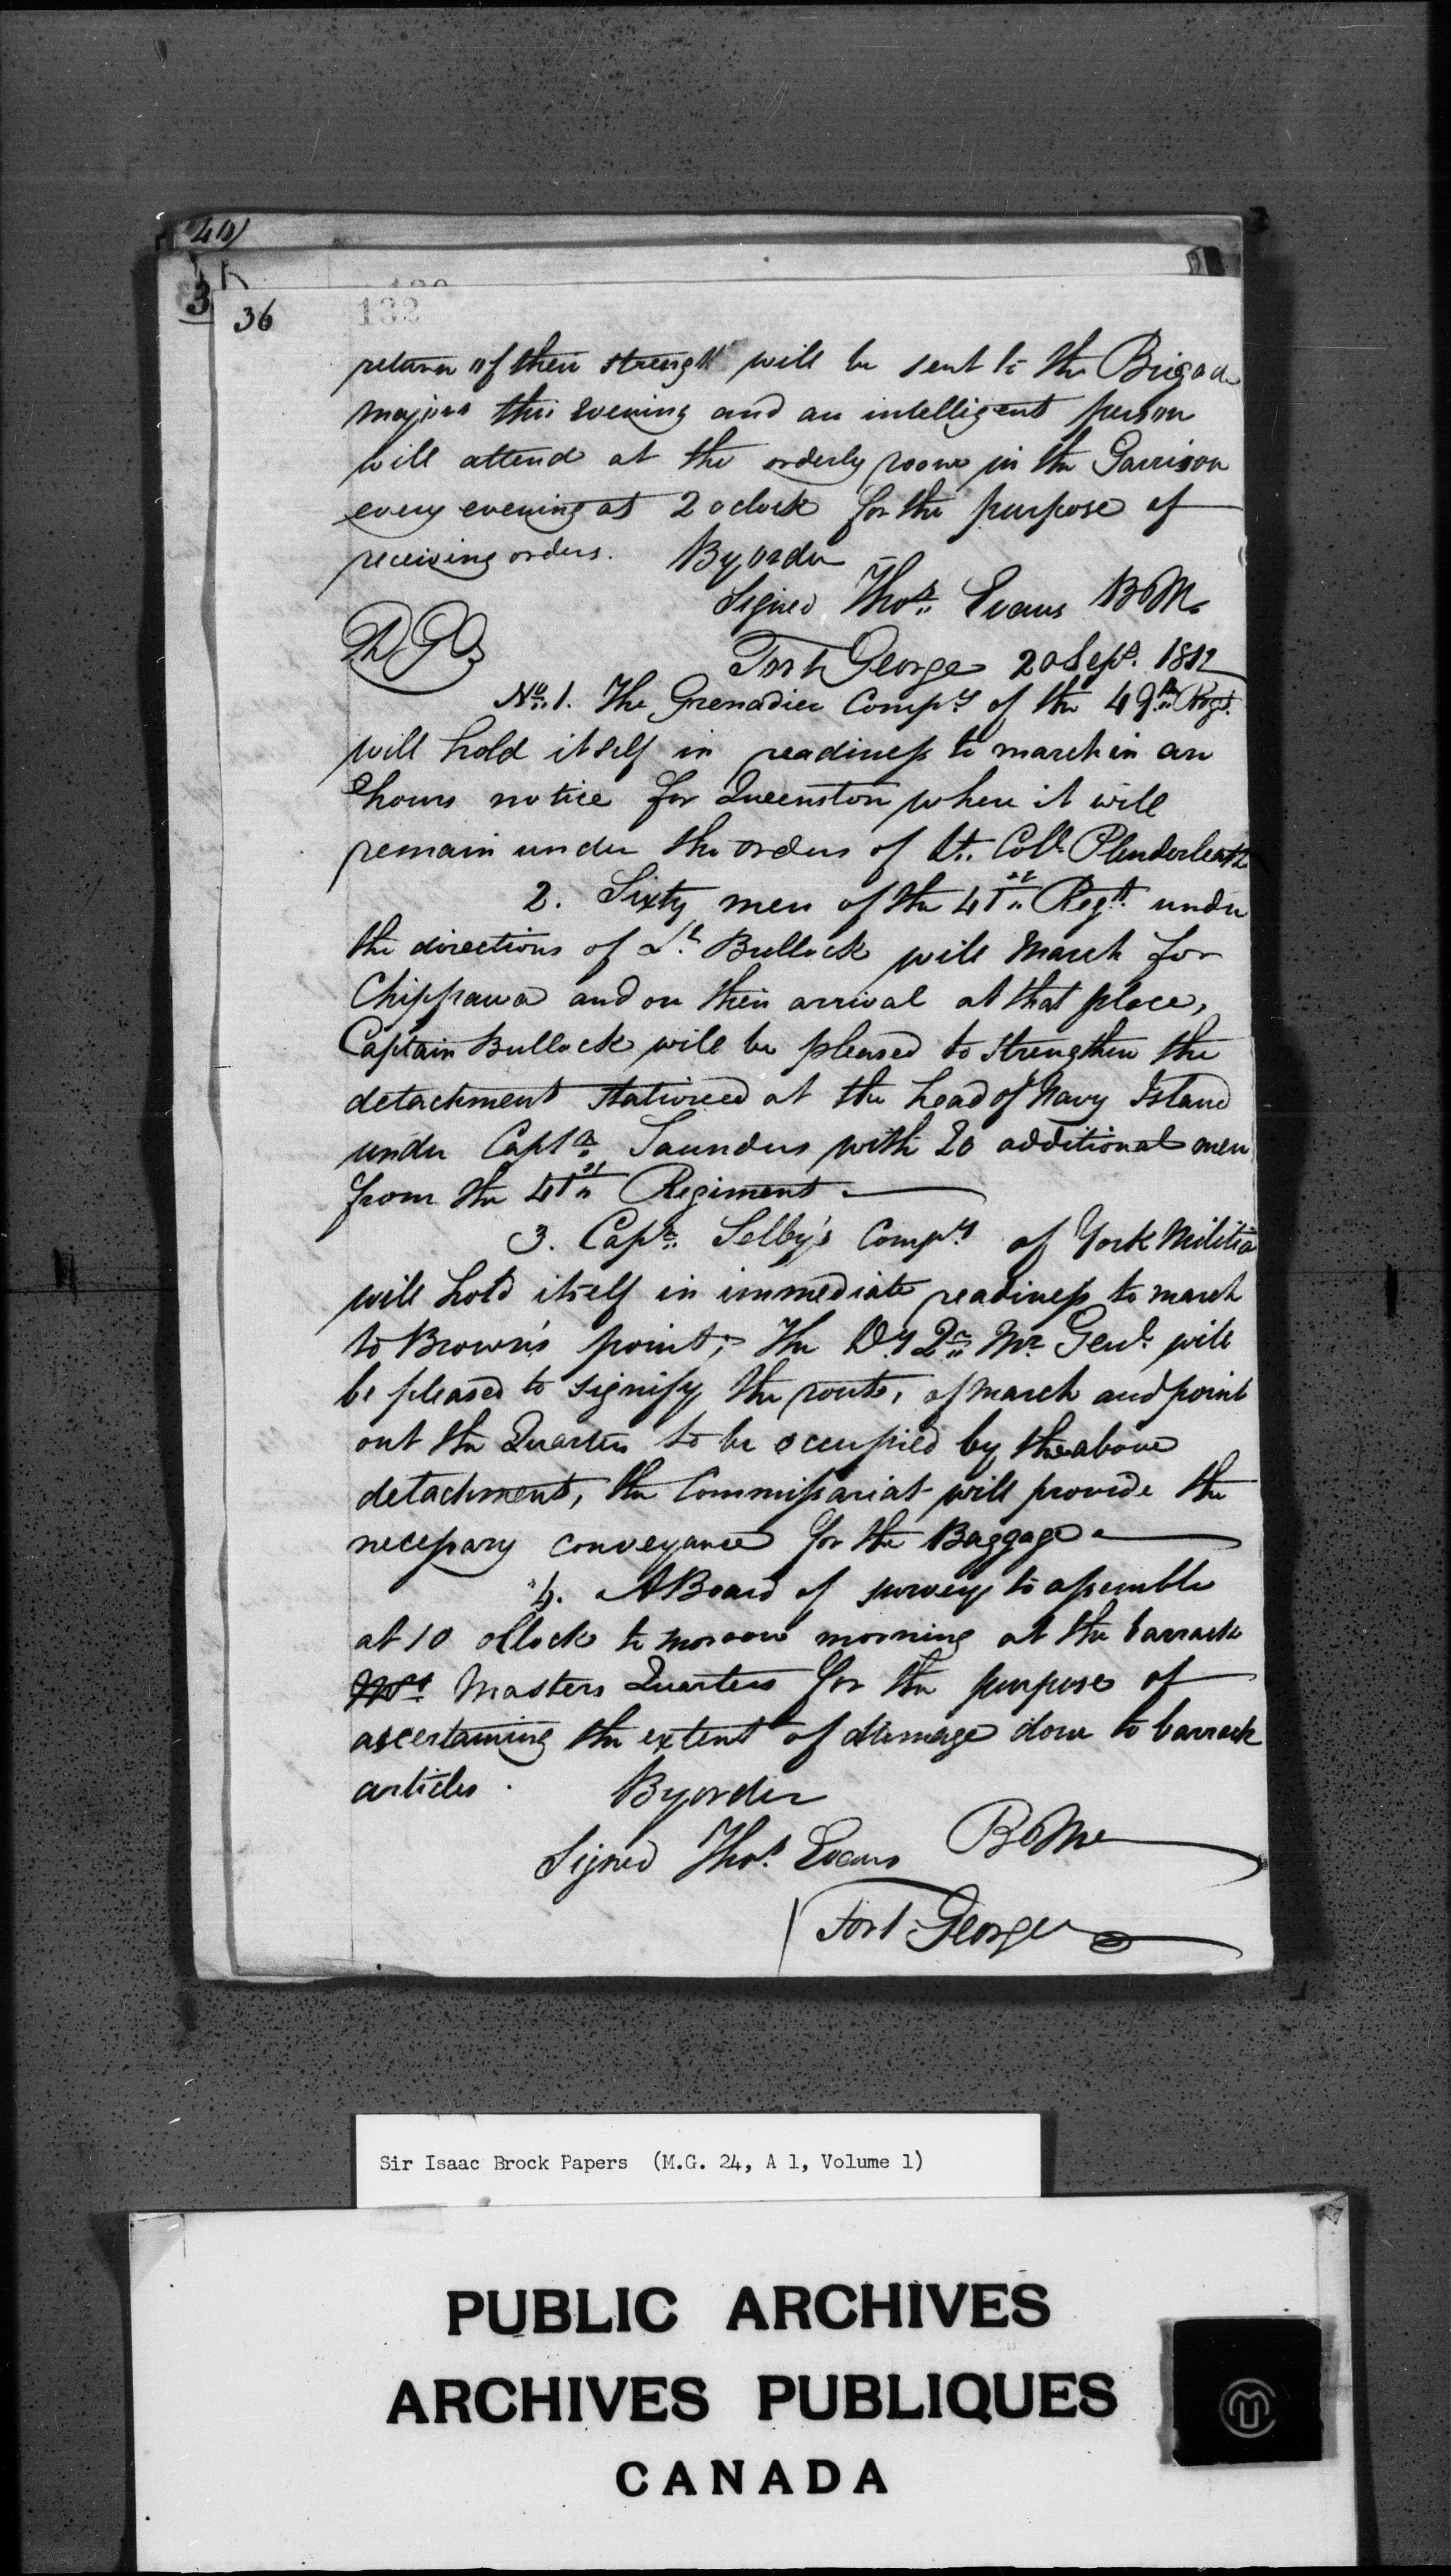 40
3
36
132
return of their strength will be sent to the Brigade
Majors this evening and an intelligent person
will attend at the orderly room in the Garrison
every evening at 2 oclock for the purpose of
receiving orders. By order
Signed Thos. Evans B M.
D G O
Fort George 20 Sept. 1812
No. 1. The Grenadier Compy. of the 49th Regt.
will hold itself in readiness to march in an
hours notice for Queenston where it will
remain under the orders of Lt. Coll. Plenderleath
2. Sixty men of the 41st Regt. under
the directions of Lt. Bullock will march for
Chippawa and on their arrival at that place,
Captain Bullock will be pleased to strengthen the
detachment stationed at the head of Navy Island
under Captn. Saunders with 20 additional men
from the 41st Regiment.
3. Captn. Selby's Compy. of York Militia
will hold itself in immediate readiness to march
to Brown's point; the Dy. Qr. Mr. Genl. will
be pleased to signify the route, of march and point
out the Quarters to be occupied by the above
detachment, the Commissariat will provide the
necessary conveyance for the Baggage.
4. A Board of survey to assemble
at 10 oClock to morrow morning at the barrack
Masters Quarters for the purpose of
ascertaining the extent of damage done to barrack
articles. By order
Signed Thos. Evans B M
Fort George
Sir Isaac Brock Papers (M.G. 24, A 1, Volume 1)
PUBLIC ARCHIVES
ARCHIVES PUBLIQUES
CANADA